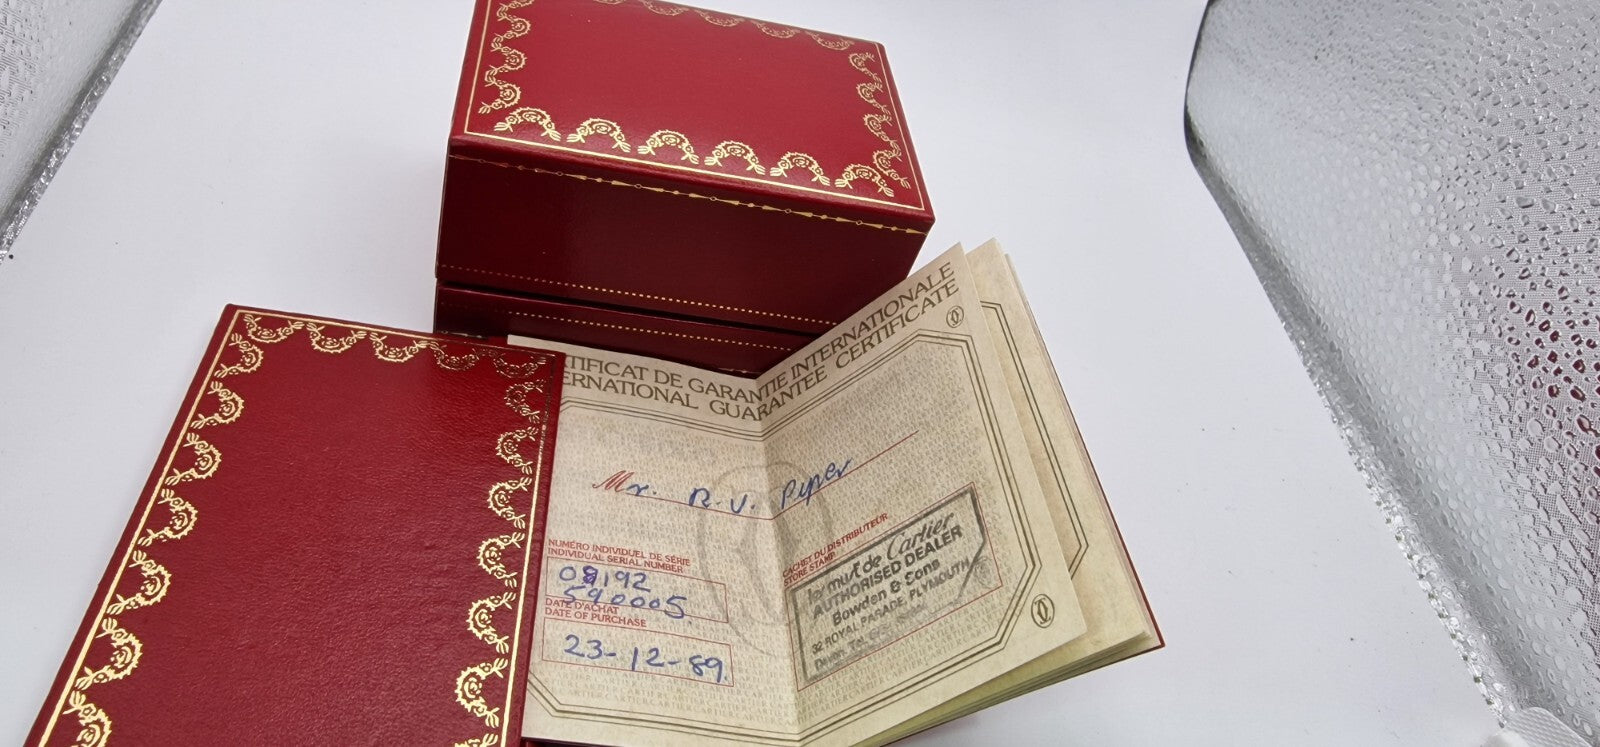 TIFICAT DE GARANTIE INTERNATIONALE
ERNATIONAL GUARANTEE CERTIFICATE
Mr. R. V. Piper
NUMÉRO INDIVIDUEL DE SÉRIE
INDIVIDUAL SERIAL NUMBER
08192
590005
DATE D'ACHAT
DATE OF PURCHASE
23-12-89
CACHET DU DISTRIBUTEUR
STORE STAMP
les must de Cartier
AUTHORISED DEALER
Bowden & Sons
32 ROYAL PARADE, PLYMOUTH
Devon. Tel.